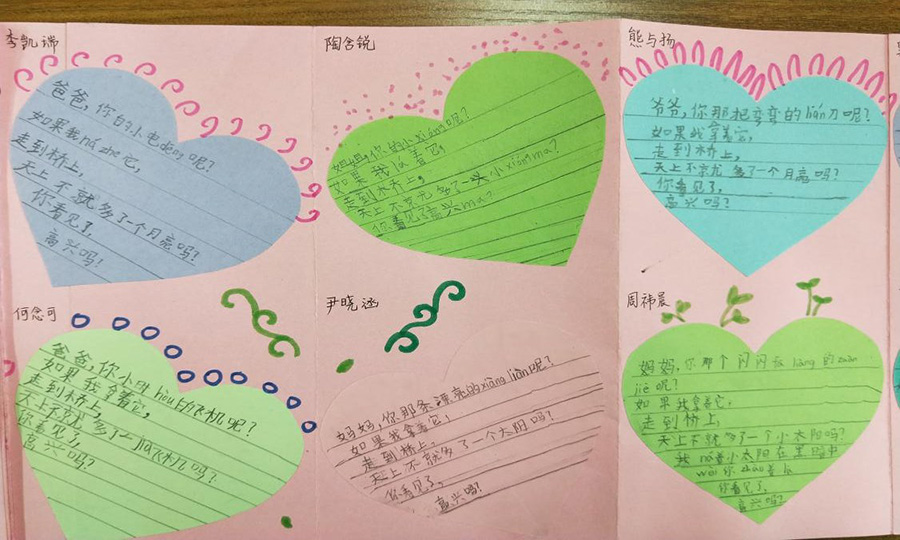 李凯瑞
爸爸,你的小电
如果我ná zhe它,
走到桥上,
天上不就多了一个月亮吗?
你看见了,
高兴吗?
陶含锐
妈妈,你的小xiàng呢?
如果我
走到木桥上,
天上不京尤多了一头小xiàng ma?
你看见了高兴ma?
熊与扬
爷爷,你那把弯弯的lián刀呢?
如果我拿着它,
走到桥上,
天上不京尤多了一个月亮吗?
你看见了,
高兴吗?
何念可
爸爸,你小时hou的飞机呢?
如果我拿着它,
走到桥上,
天上不京尤多了一jià飞机吗?
你看见了,
高兴吗?
尹晓涵
妈妈,你那条漂亮的xiàng liàn呢?
如果我拿着它,
走到桥上,
天上不就多了一个太阳吗?
你看见了,
高兴吗?
周祎晨
妈妈,你那个闪闪发liàng的zuàn
jiè呢?
如果我拿着它,
走到桥上,
天上不就多了一个小太阳吗?
我ná着小太阳在黑暗中
wèi你zhào着
你看见了,
高兴吗?